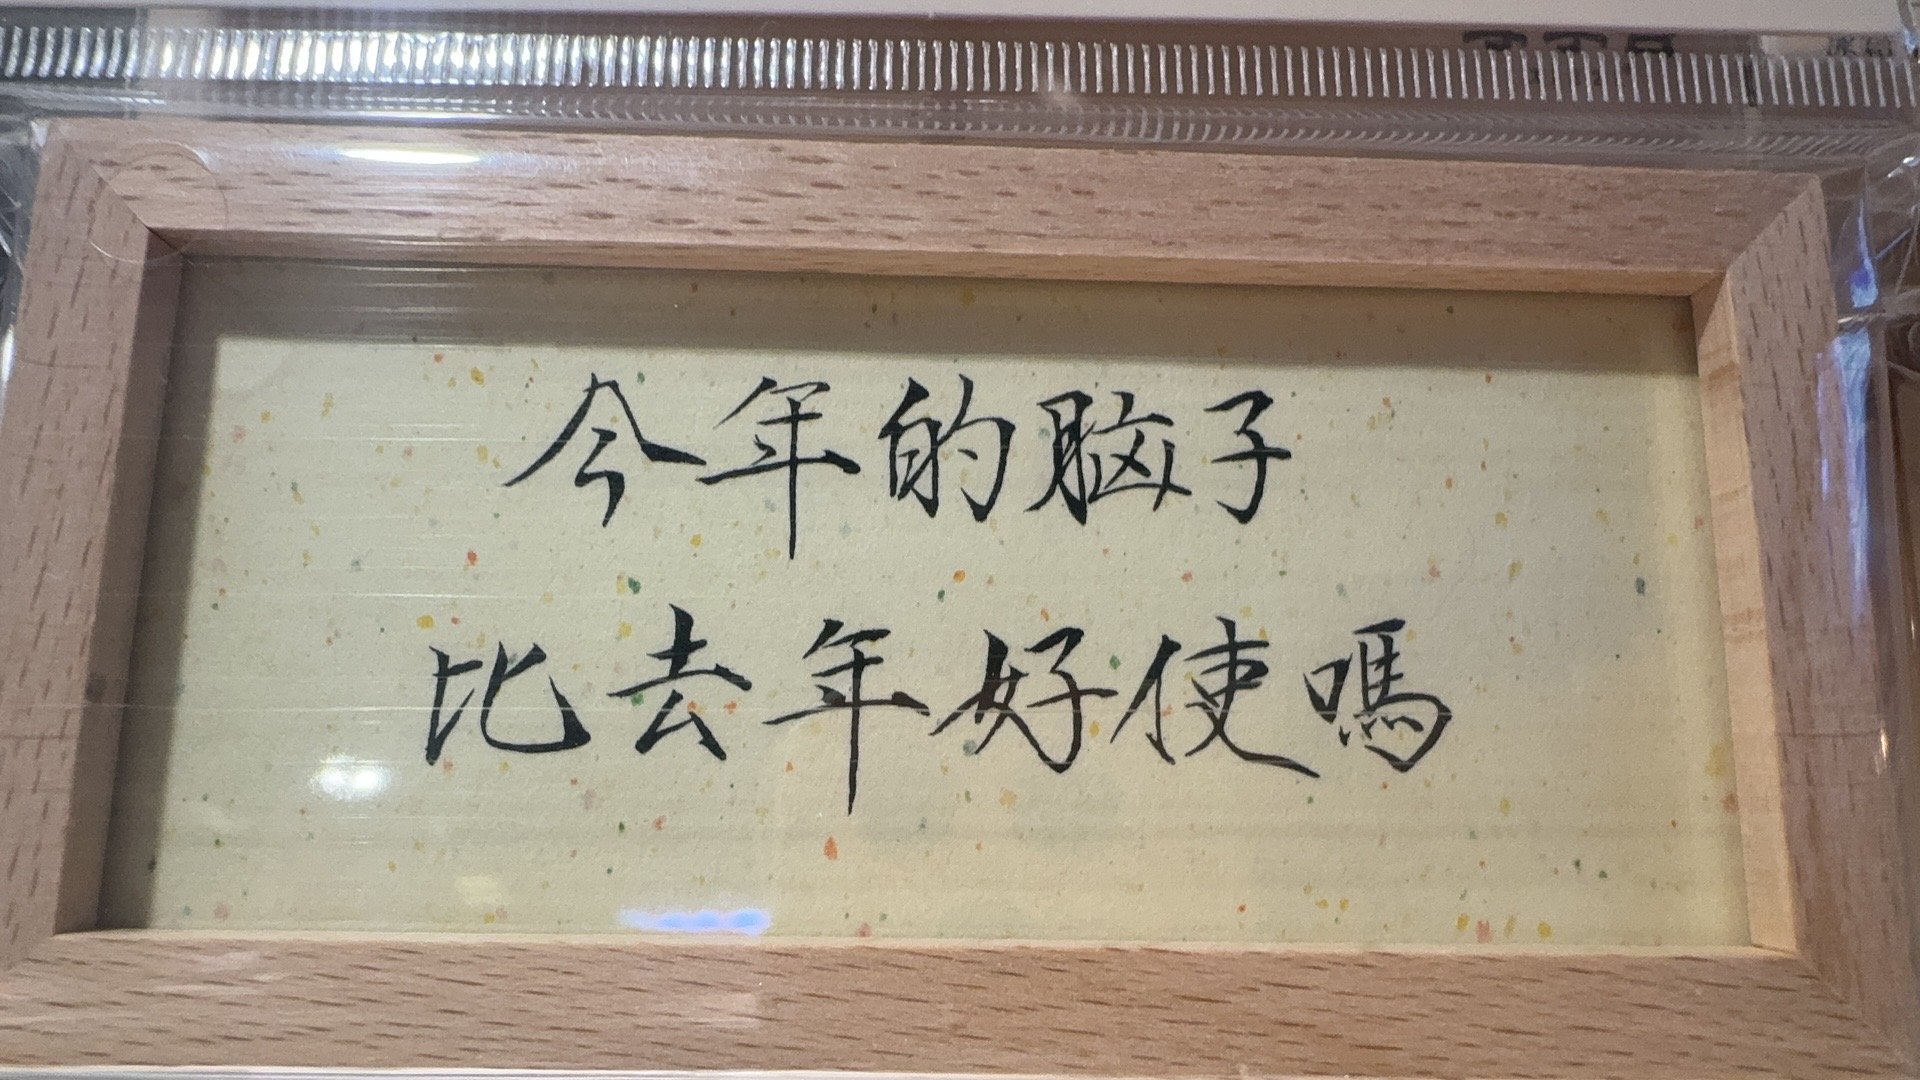 今年的脑子
比去年好使嗎